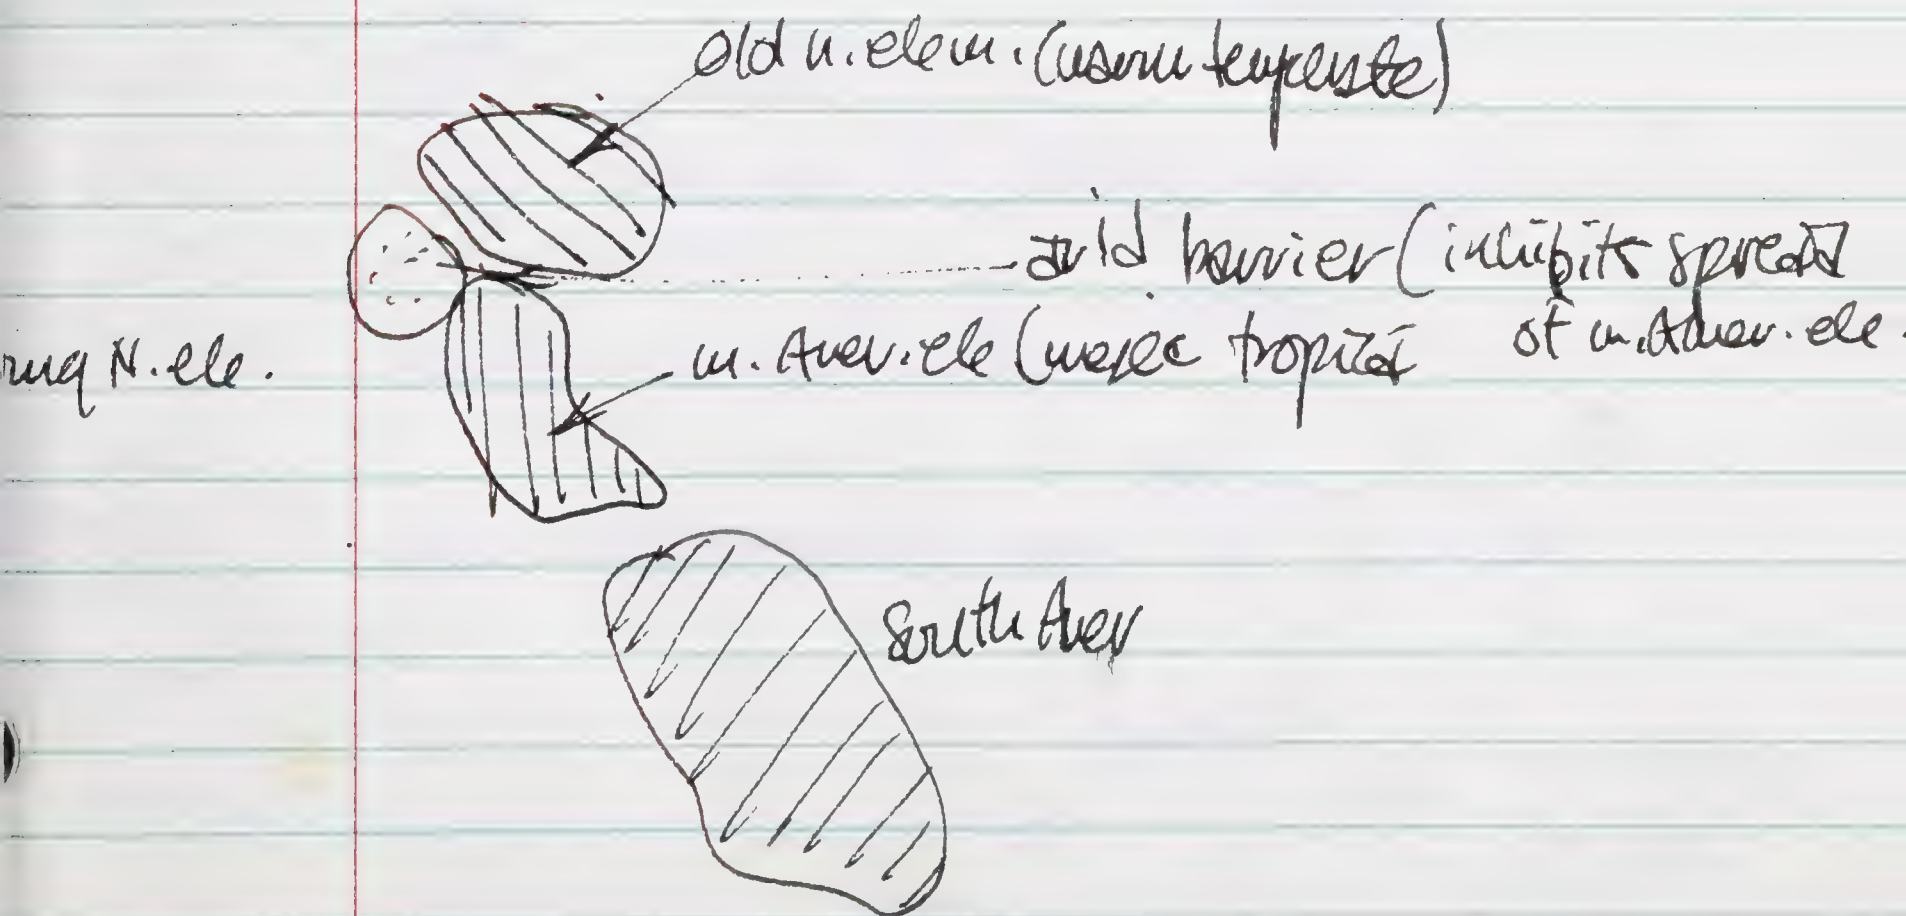 old n. elem. (warm temperate)
arid barrier (inhibits spread
of m. Amer. ele.
m. Amer. ele (mesic tropical
N. ele.
South Amer